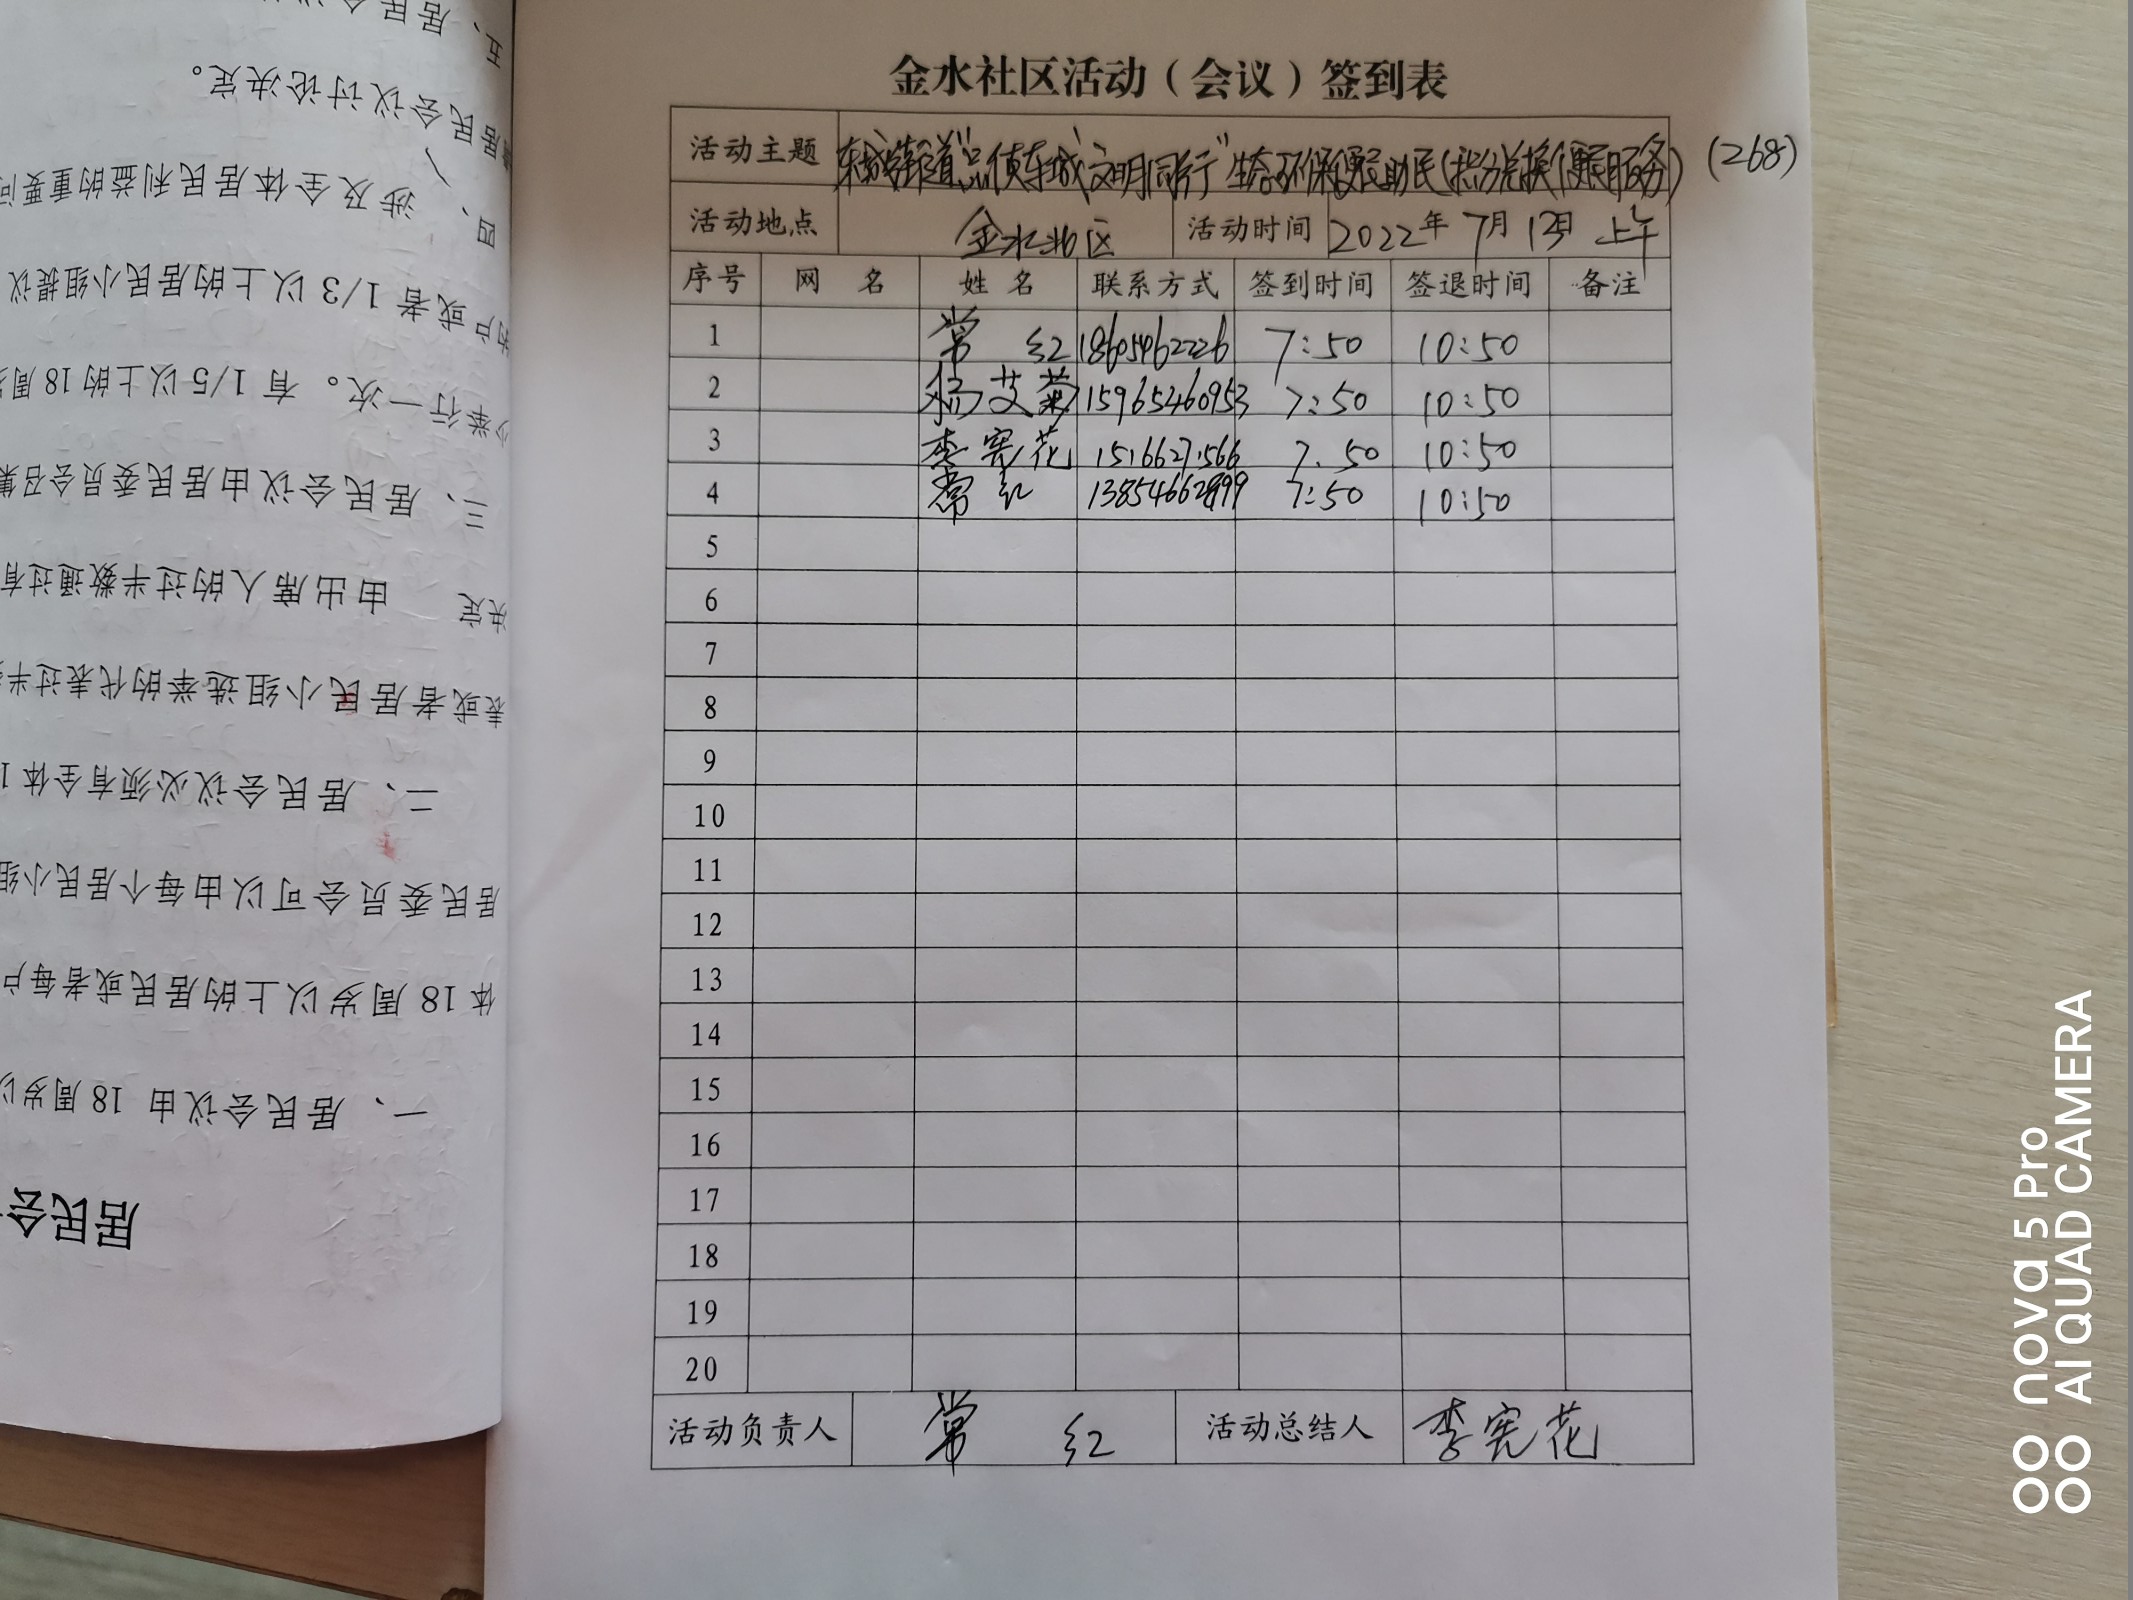 金水社区活动（会议）签到表
活动主题 东城街道"品质东城 文明同行"生态环保便民助民(积分兑换便民服务) (268)
活动地点 金水北区 活动时间 2022年 7月 13日 上午
序号 网 名 姓 名 联系方式 签到时间 签退时间 备注
1 常 红 18605462226 7:50 10:50
2 杨艾菊 15965460953 7:50 10:50
3 李宪花 7.50 10:50
4 常红 7:50 10:50
5
6
7
8
9
10
11
12
13
14
15
16
17
18
19
20
活动负责人 常 红 活动总结人 李宪花
居民会
一、居民会议由 18 周岁以
体 18 周岁以上的居民或者每户
居民委员会可以由每个居民小组
二、居民会议必须有全体 1
表或者居民小组选举的代表过半
决定 由出席人的过半数通过有
三、居民会议由居民委员会召集
少举行一次。有 1/5 以上的 18 周岁
的户或者 1/3 以上的居民小组提议
四、涉及全体居民利益的重要问
居民会议讨论决定。
五、居民会
nova 5 Pro
AI QUAD CAMERA